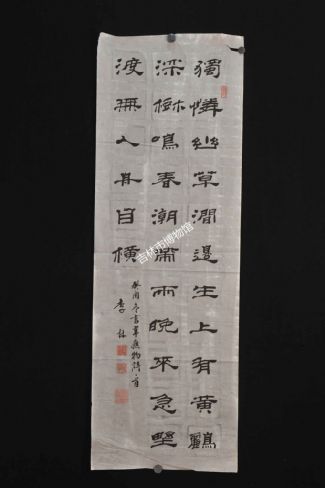 獨憐幽草澗邊生上有黃鸝
深樹鳴春潮帶雨晚來急野
渡無人舟自橫
癸酉冬書韋應物詩一首
李
吉林市博物馆